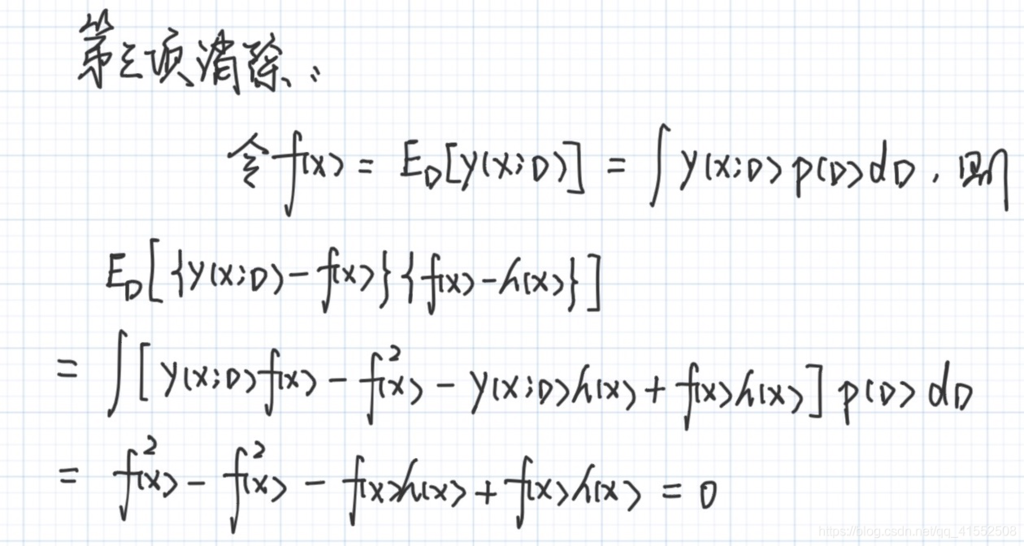 第三项消除：
令 f(x) = E_D[y(x;D)] = ∫ y(x;D) p(D) dD，则
E_D[{y(x;D) - f(x)}{f(x) - h(x)}]
= ∫[y(x;D)f(x) - f²(x) - y(x;D)h(x) + f(x)h(x)] p(D) dD
= f²(x) - f²(x) - f(x)h(x) + f(x)h(x) = 0
https://blog.csdn.net/qq_41552508